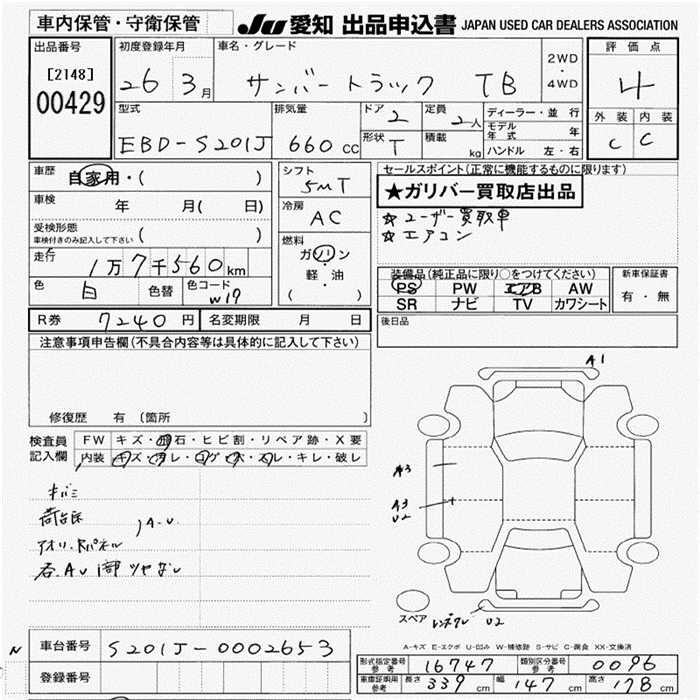 車内保管・守衛保管 JU 愛知 出品申込書 JAPAN USED CAR DEALERS ASSOCIATION
出品番号 初度登録年月 車名・グレード 評価点
[2148] 00429 26 3月 サンバートラック TB 2WD・4WD 4
型式 排気量 ドア 2 定員 2人 ディーラー・並行 外装 内装
EBD-S201J 660cc 形状 T 積載 kg モデル年式 年 C C
ハンドル 左・右
車歴 自家用・( ) シフト 5MT セールスポイント(正常に機能するものに限ります)
★ガリバー買取店出品
車検 年 月( 日) 冷房 AC ☆ユーザー買取車
受検形態 車検付きのみ記入して下さい ( ) ☆エアコン
走行 1万7千560km 燃料 ガソリン 軽・油 ( )
装備品(純正品に限り○をつけてください) 新車保証書
色 白 色替 色コード W19 PS PW エアB AW 有・無
SR ナビ TV カワシート
R券 7240円 名変期限 月 日 後日品
注意事項申告欄(不具合内容等は具体的に記入して下さい)
修復歴 有 〔箇所 〕
検査員記入欄 FW キズ・飛石・ヒビ割・リペア跡・X要
内装 キズ・汚レ・コゲ・穴・スレ・キレ・破レ
A1
A3
キバミ A3
荷台床 U2
A.U
アオリ.Rパネル
各AU 1部ツヤなし
スペア U2
A-キズ E-エクボ U-凹み W-補修跡 S-サビ C-腐食 XX-交換済
N 車台番号 S201J-0002653 形式指定番号 参考 16747 類別区分番号 参考 0096
登録番号 車庫証明用 参考 長さ 339cm 幅 147cm 高さ 178cm